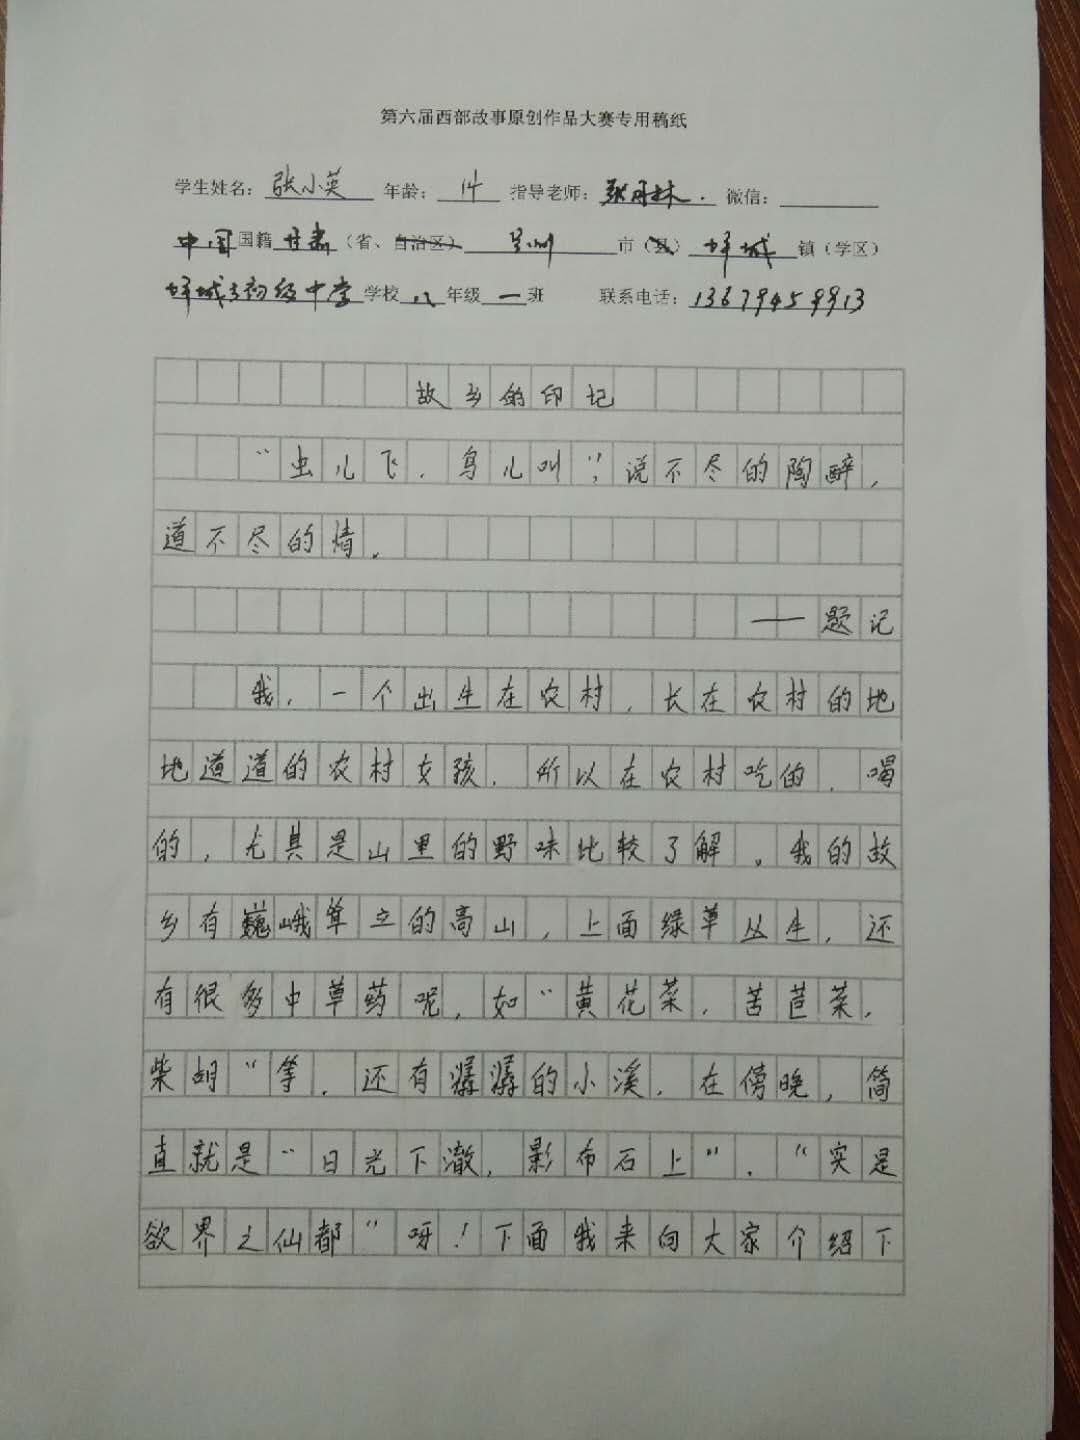 第六届西部故事原创作品大赛专用稿纸
学生姓名：张小英 年龄：14 指导老师：张月林. 微信：
中国国籍 甘肃（省、自治区） 兰州 市（县） 坪城 镇（学区）
坪城乡初级中学学校 八 年级 一 班 联系电话：13679459913
故乡的印记
“虫儿飞，鸟儿叫”，说不尽的陶醉，
道不尽的情。
——题记
我，一个出生在农村，长在农村的地
地道道的农村女孩，所以在农村吃的，喝
的，尤其是山里的野味比较了解。我的故
乡有巍峨耸立的高山，上面绿草丛生，还
有很多中草药呢，如“黄花菜，苦苣菜，
柴胡“等，还有潺潺的小溪，在傍晚，简
直就是“日光下澈，影布石上”，“实是
欲界之仙都”呀！下面我来向大家介绍下